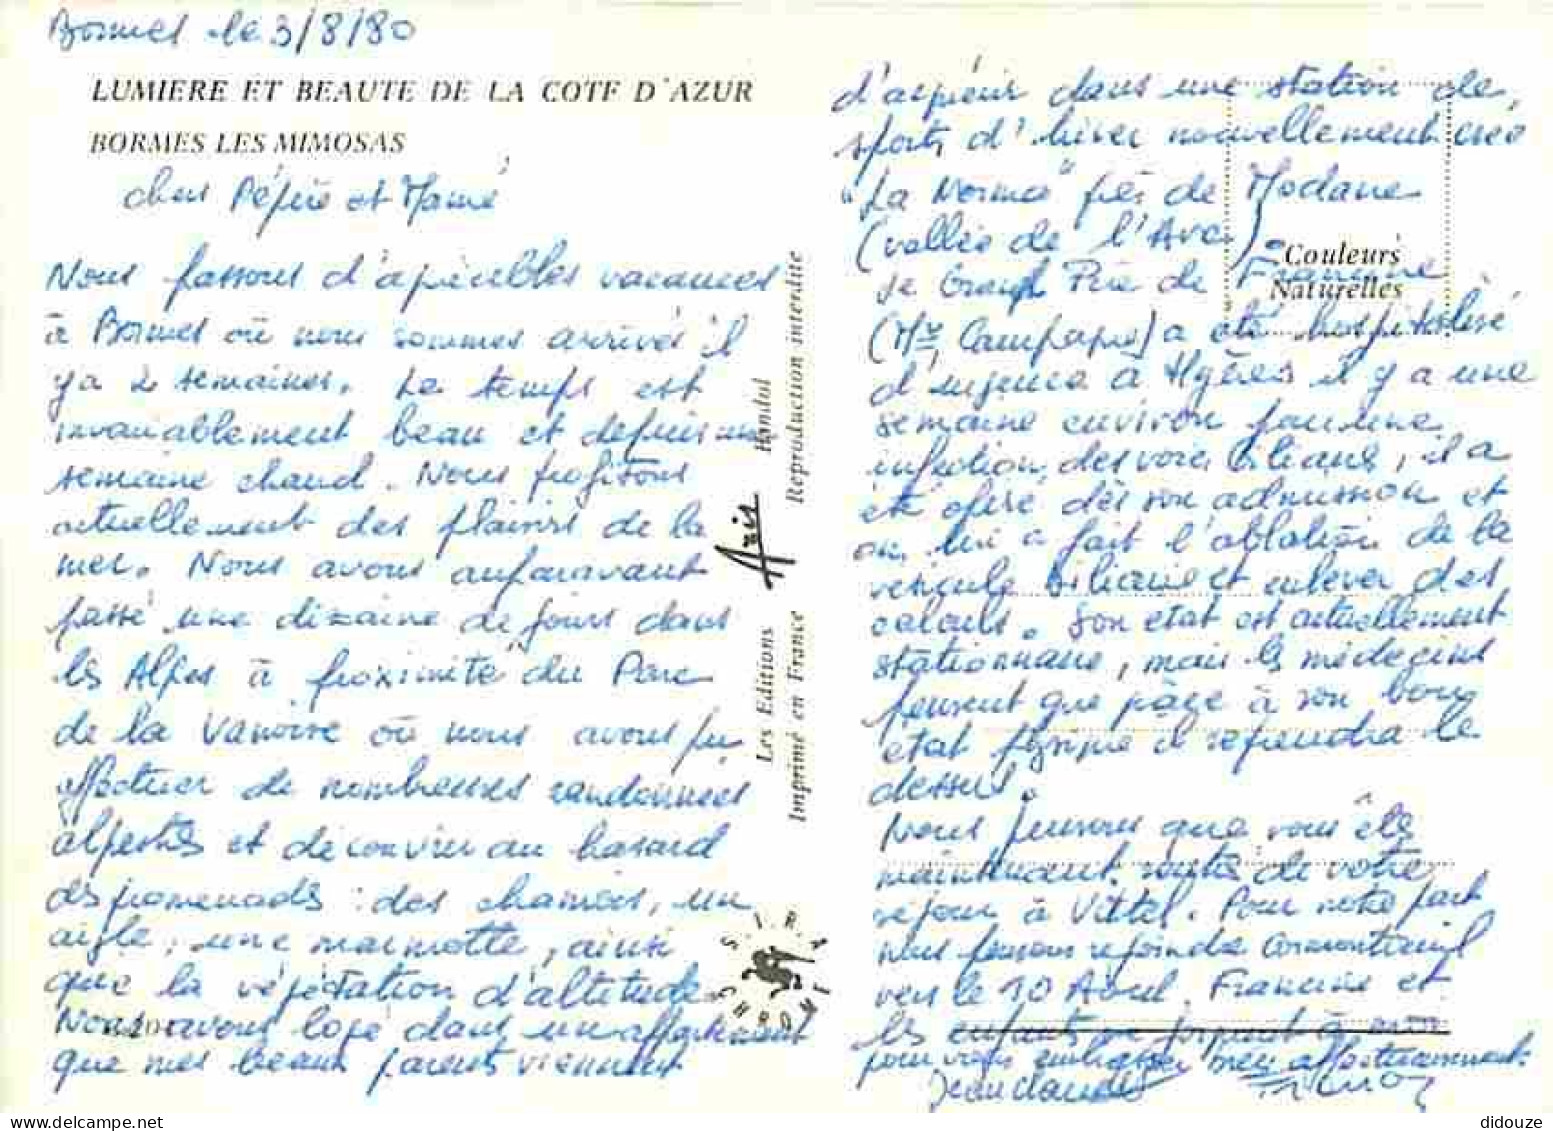 Bormes le 3/8/80
LUMIERE ET BEAUTE DE LA COTE D'AZUR
BORMES LES MIMOSAS
chers Pépère et Mamé
Nous passons d'agréables vacances
à Bormes où nous sommes arrivés il
y a 2 semaines. Le temps est
invariablement beau et depuis une
semaine chaud. Nous profitons
actuellement des plaisirs de la
mer. Nous avons auparavant
passé une dizaine de jours dans
les Alpes à proximité du Parc
de la Vanoise où nous avons pu
effectuer de nombreuses randonnées
alpestres et découvrir au hasard
des promenades : des chamois, un
aigle, une marmotte, ainsi
que la végétation d'altitude.
Nous avons logé dans un appartement
que mes beaux parents viennent
Les Editions Aris Bandol
Imprimé en France Reproduction interdite
S.I.R.A. CHROME
d'acquérir dans une station de
sports d'hiver nouvellement créé
"La Norma" près de Modane
(vallée de l'Arc).
Couleurs
Naturelles
Le Grand Père de Francine
(Mr Campagne) a été hospitalisé
d'urgence à Hyères il y a une
semaine environ pour une
infection des voies biliaires, il a
été opéré dès son admission et
on lui a fait l'ablation de la
vésicule biliaire et enlever des
calculs. Son état est actuellement
stationnaire, mais les médecins
pensent que grâce à son bon
état physique il reprendra le
dessus.
Nous pensons que vous êtes
maintenant rentrés de votre
séjour à Vittel. Pour notre part
nous pensons rejoindre Cormontreuil
vers le 10 Août. Francine et
les enfants se joignent à moi
pour vous embrasser bien affectueusement.
Jean Claude